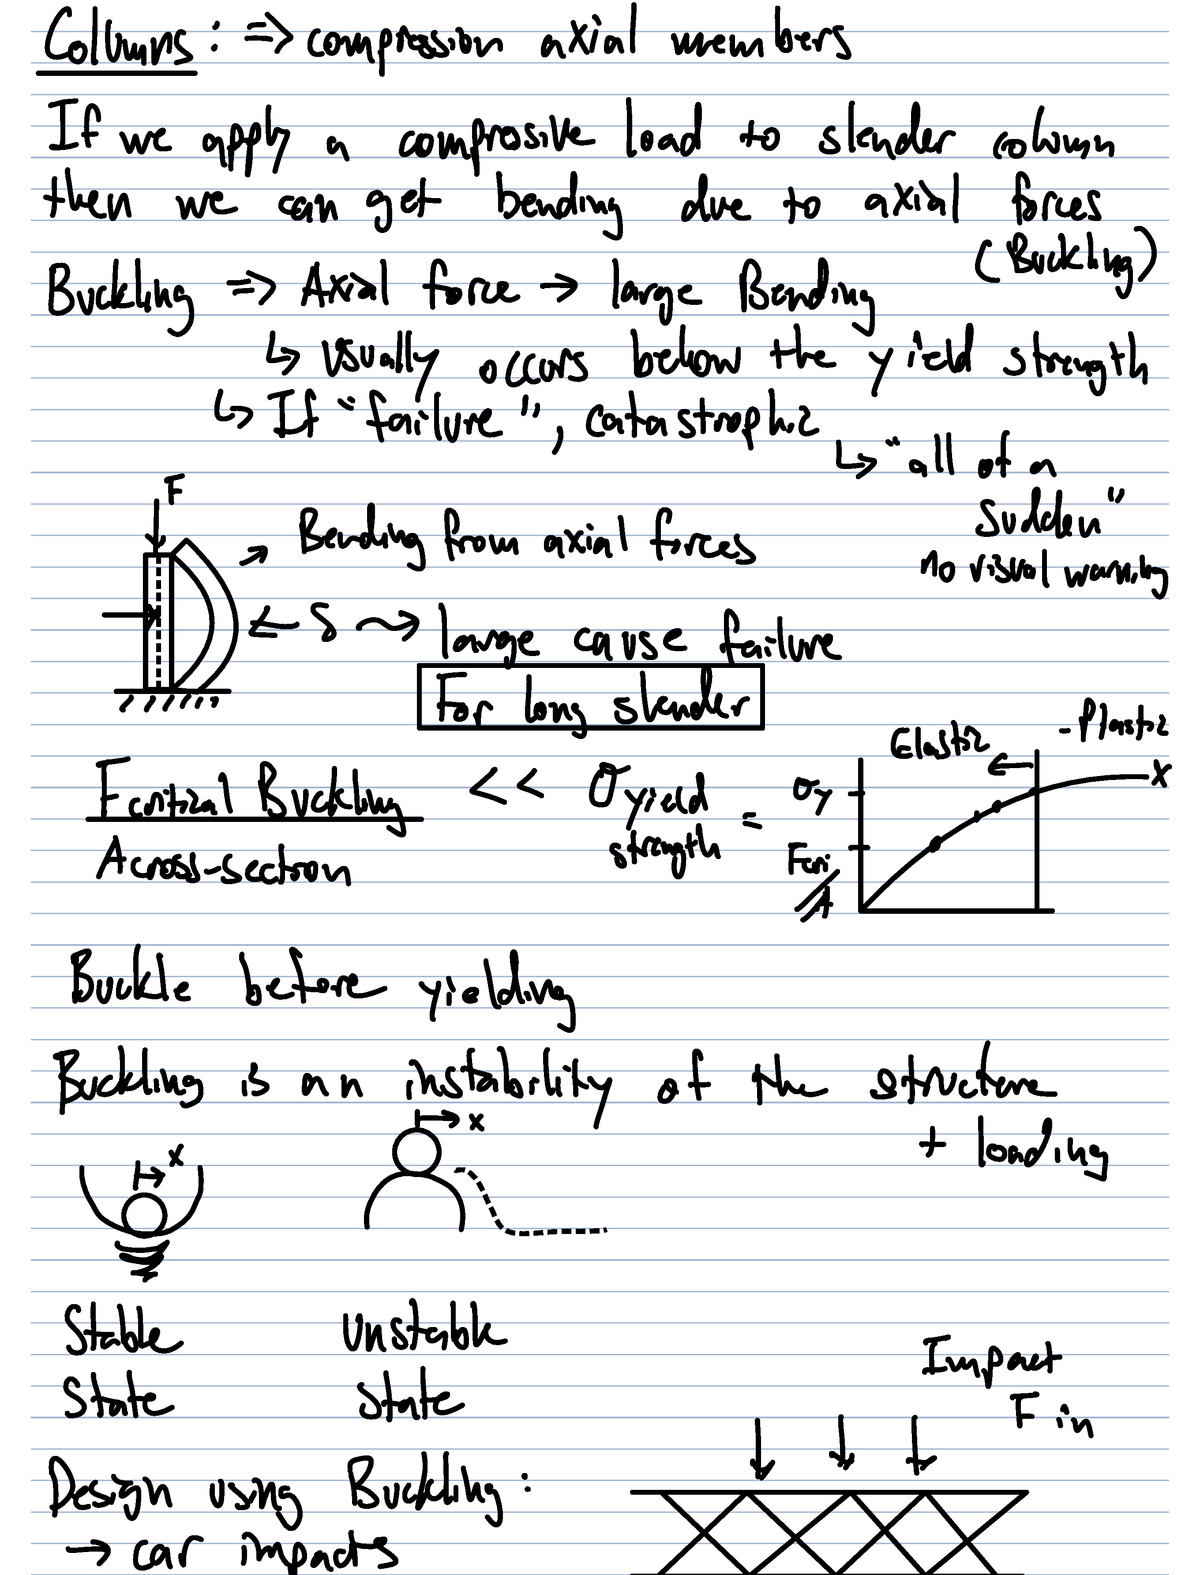 Columns: => compression axial members
If we apply a comprossive load to slender column
then we can get bending due to axial forces
(Buckling)
Buckling => Axial force → large Bending
↳ usually occurs below the yield strength
↳ If "failure", catastrophic
↳ "all of a
sudden"
no visual warning
F
→ Bending from axial forces
← δ ⤳ large cause failure
For long slender
Fcritical Buckling << σ yield
strength =
Across-section
Elastic
- Plastic
σy
x
Fcri
A
Buckle before yielding
Buckling is an instability of the structure
+ loading
x
x
Stable
State
Unstable
State
Impact
F in
Design using Buckling:
→ car impacts